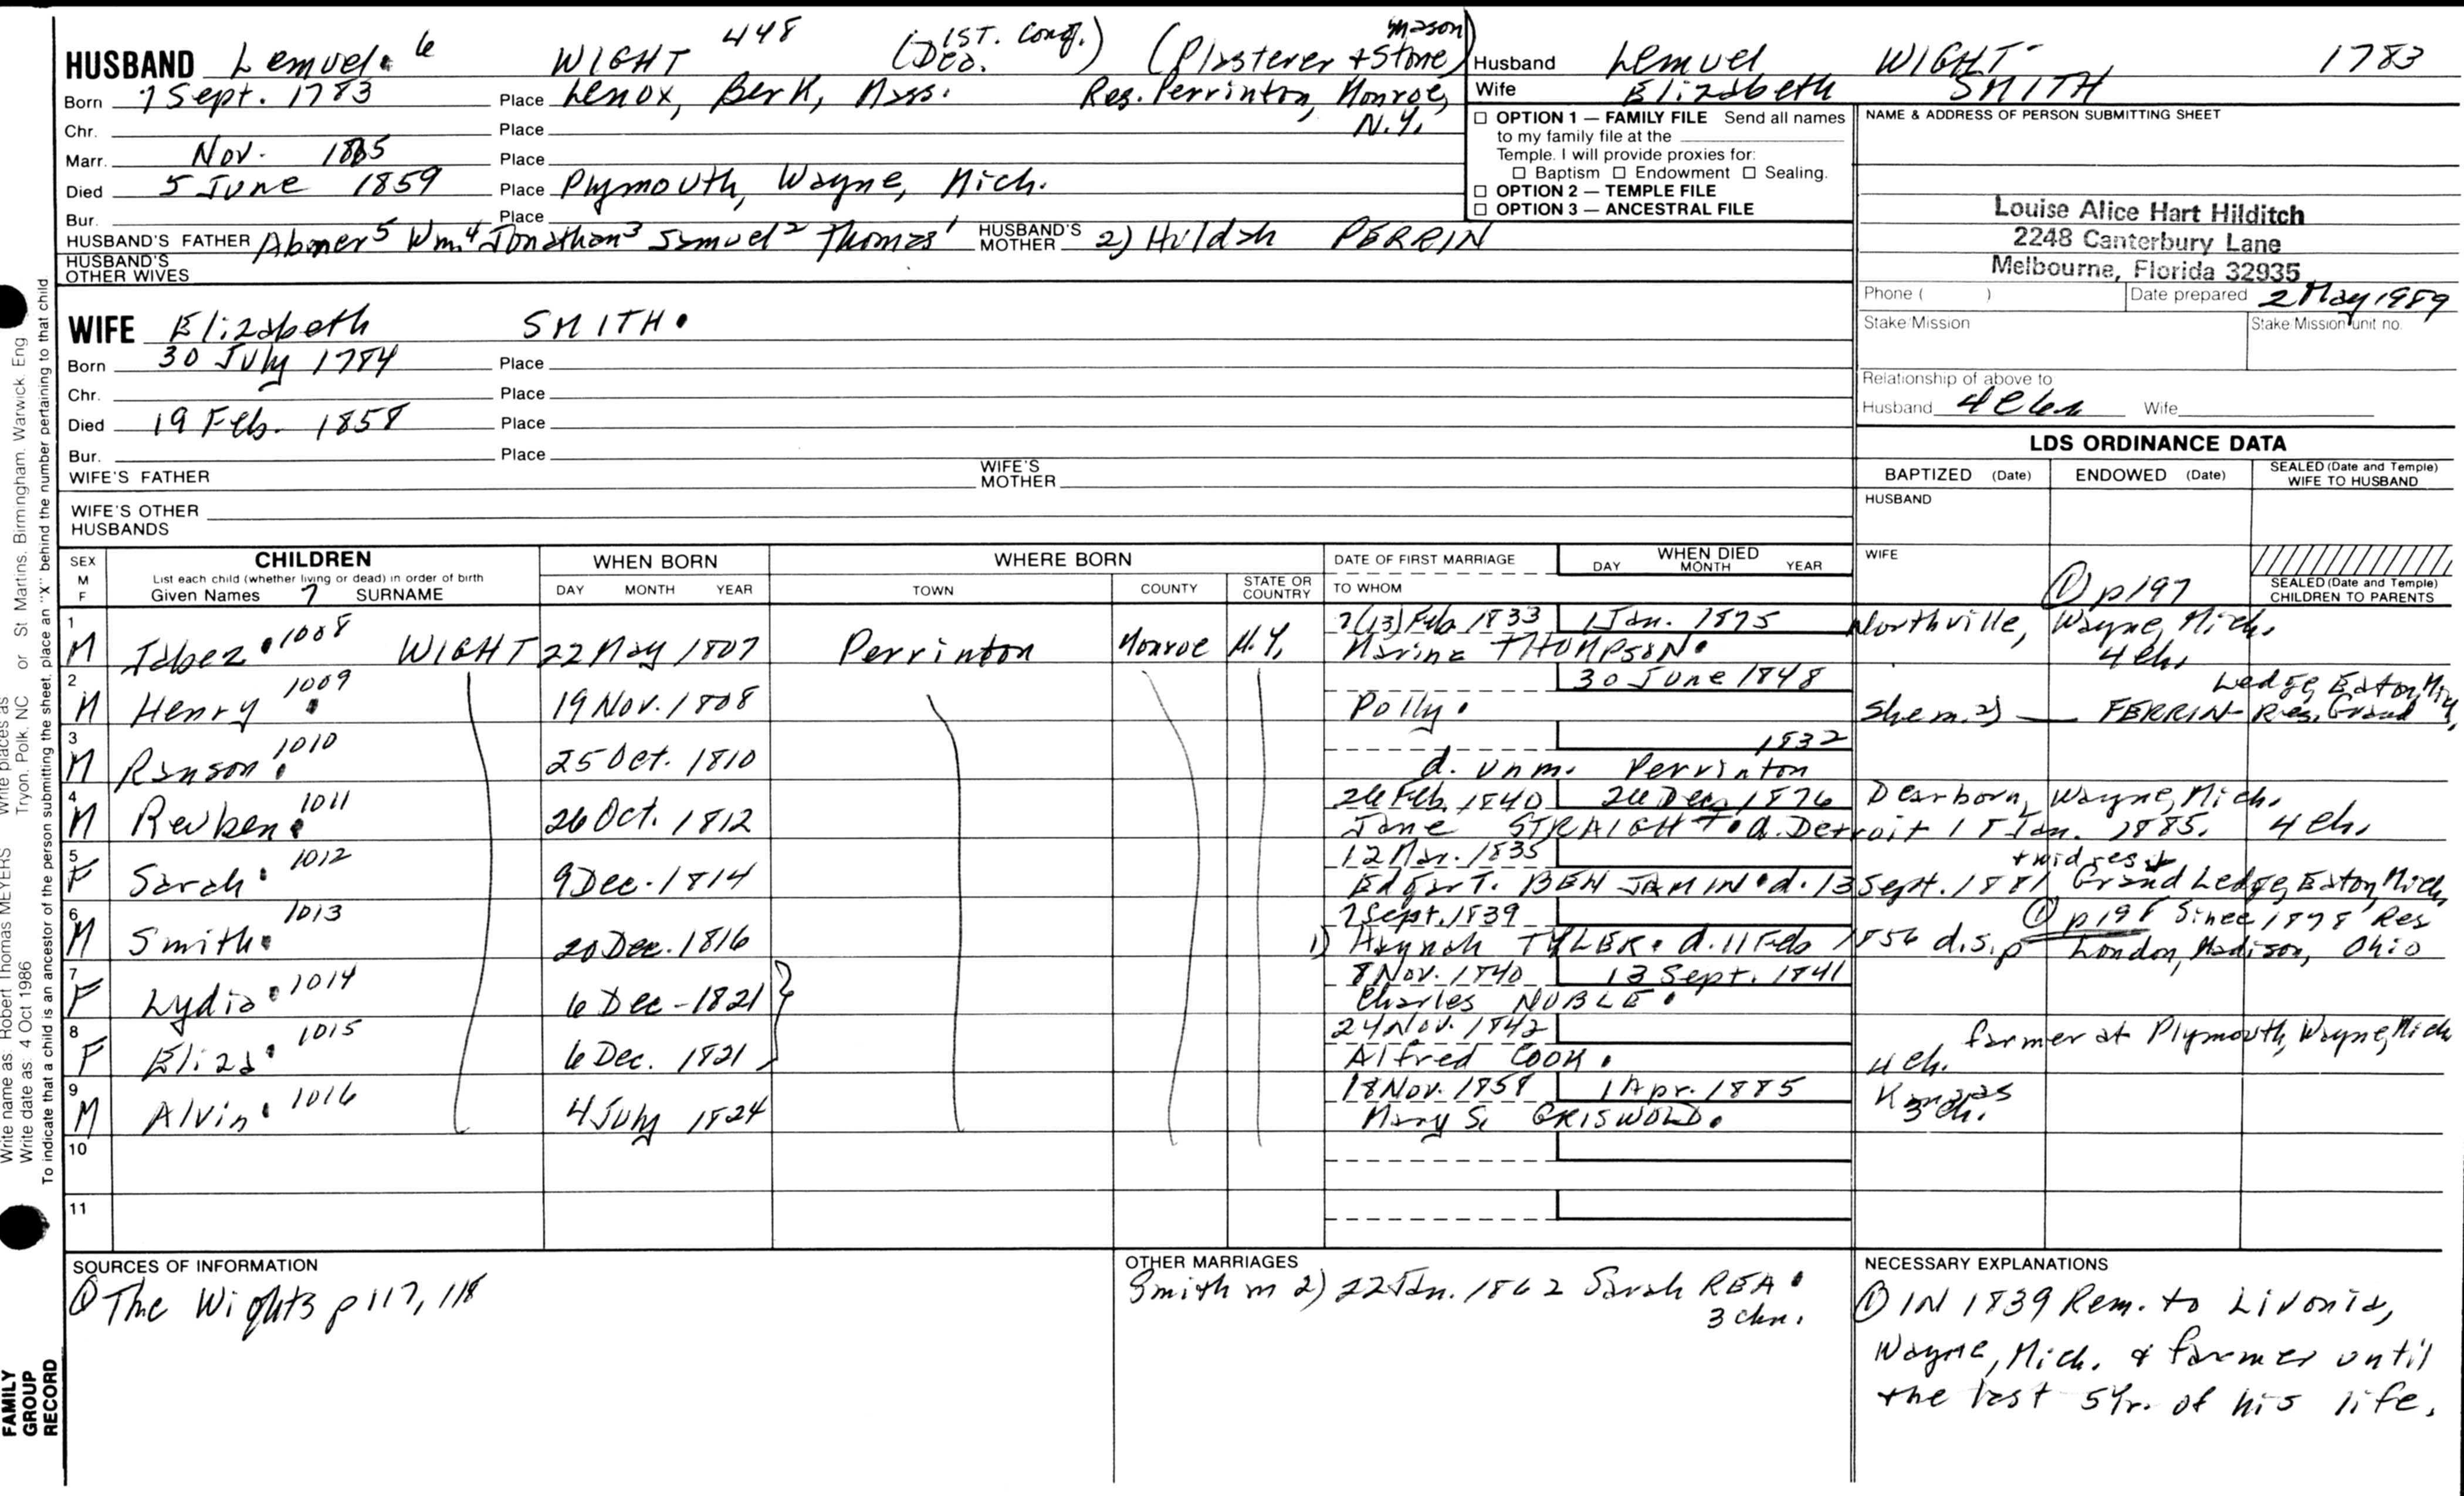 HUSBAND Lemuel. 6 WIGHT 448 (Dea. 1ST. Cong.) (Plasterer + Stone Mason)
Born 7 Sept. 1783 Place Lenox, Berk, Mass. Res. Perrinton, Monroe, N.Y.
Chr. Place
Marr. Nov. 1805 Place
Died 5 June 1859 Place Plymouth, Wayne, Mich.
Bur. Place
HUSBAND'S FATHER Abner 5 Wm. 4 Jonathan 3 Samuel 2 Thomas 1 HUSBAND'S MOTHER 2) Huldah PERRIN
HUSBAND'S OTHER WIVES
Husband Lemuel WIGHT 1783
Wife Elizabeth SMITH
OPTION 1 — FAMILY FILE Send all names
to my family file at the
Temple. I will provide proxies for:
Baptism Endowment Sealing.
OPTION 2 — TEMPLE FILE
OPTION 3 — ANCESTRAL FILE
NAME & ADDRESS OF PERSON SUBMITTING SHEET
Louise Alice Hart Hilditch
2248 Canterbury Lane
Melbourne, Florida 32935
Phone ( ) Date prepared 2 May 1989
Stake/Mission Stake/Mission unit no.
Relationship of above to
Husband Wife
WIFE Elizabeth SMITH.
Born 30 July 1784 Place
Chr. Place
Died 19 Feb. 1858 Place
Bur. Place
WIFE'S FATHER WIFE'S MOTHER
WIFE'S OTHER HUSBANDS
LDS ORDINANCE DATA
BAPTIZED (Date) ENDOWED (Date) SEALED (Date and Temple) WIFE TO HUSBAND
HUSBAND
WIFE
① p197 SEALED (Date and Temple) CHILDREN TO PARENTS
SEX M F CHILDREN WHEN BORN WHERE BORN DATE OF FIRST MARRIAGE WHEN DIED
List each child (whether living or dead) in order of birth
Given Names 7 SURNAME DAY MONTH YEAR TOWN COUNTY STATE OR COUNTRY TO WHOM DAY MONTH YEAR
1 7(13) Feb 1833 1 Jan. 1875
M Jabez. 1008 WIGHT 22 May 1807 Perrinton Monroe N.Y. Marina THOMPSON. Northville, Wayne, Mich. 4 ch.
2 30 June 1848
M Henry 1009 19 Nov. 1808 Polly. She m. 2) FERRIN - Res. Grand Ledge, Eaton, Mich
3 1832
M Ranson. 1010 25 Oct. 1810 d. unm. Perrinton
4 26 Feb. 1840 26 Dec. 1876 Dearborn, Wayne, Mich.
M Reuben. 1011 26 Oct. 1812 Jane STRAIGHT. d. Detroit 15 Jan. 1885. 4 ch.
5 12 Mar. 1835
F Sarah. 1012 9 Dec. 1814 Edgar T. BENJAMIN. d. 13 Sept. 1881 Grand Ledge, Eaton, Mich
6 7 Sept. 1839 ① p198 Since 1878 Res
M Smith. 1013 20 Dec. 1816 1) Hannah TYLER. d. 11 Feb 1856 d.s.p London, Madison, Ohio
7 8 Nov. 1840 13 Sept. 1841
F Lydia. 1014 6 Dec - 1821 Charles NOBLE.
8 24 Nov. 1842 farmer at Plymouth, Wayne, Mich
F Eliza. 1015 6 Dec. 1821 Alfred COOK. 4 ch.
9 18 Nov. 1858 1 Apr. 1885 Kansas
M Alvin. 1016 4 July 1824 Mary S. GRISWOLD. 3 ch.
10
11
SOURCES OF INFORMATION
① The Wights p 117, 118
OTHER MARRIAGES
Smith m 2) 22 Jan. 1862 Sarah REA.
3 chn.
NECESSARY EXPLANATIONS
① IN 1839 Rem. to Livonia,
Wayne, Mich. & farmer until
the last 5 yr. of his life.
Write places as Tryon, Polk, NC or St Martins, Birmingham, Warwick, Eng
Write name as: Robert Thomas MEYERS
Write date as: 4 Oct 1986
To indicate that a child is an ancestor of the person submitting the sheet, place an "X" behind the number pertaining to that child
FAMILY
GROUP
RECORD